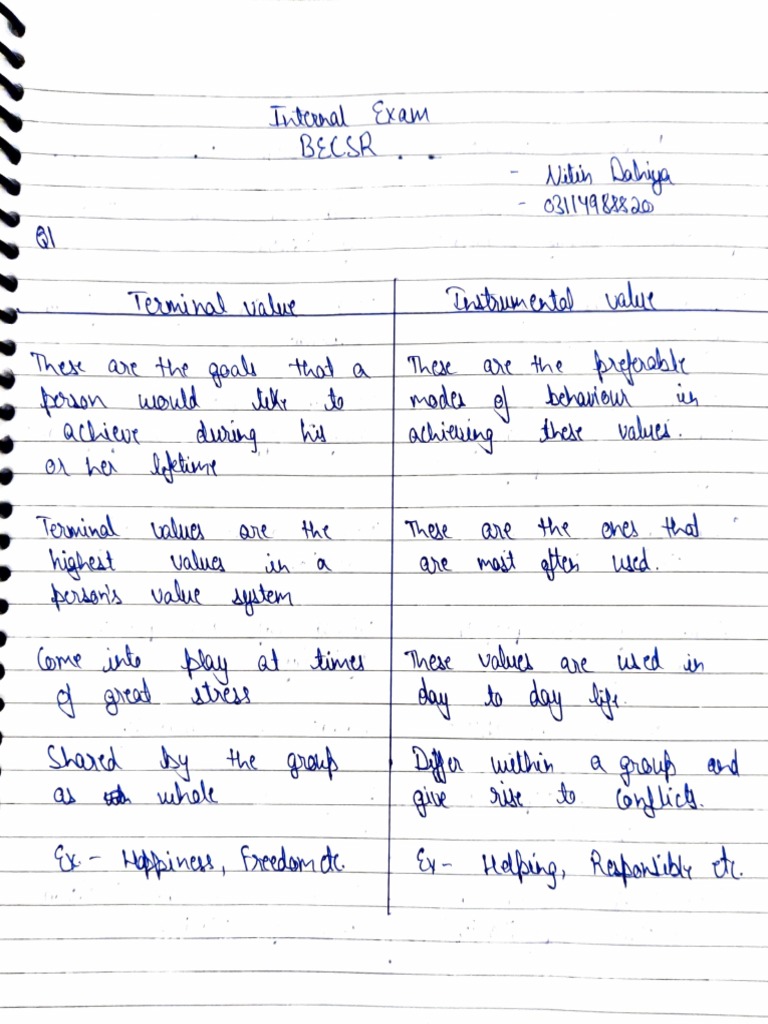 Internal Exam
BECSR
- Nitin Dahiya
- 03114988820
Q1
Terminal value
Instrumental value
These are the goals that a
person would like to
achieve during his
or her lifetime
These are the preferable
modes of behaviour in
achieving these values.
Terminal values are the
highest values in a
person's value system
These are the ones that
are most often used.
Come into play at times
of great stress
These values are used in
day to day life.
Shared by the group
as whole
Differ within a group and
give rise to conflicts.
Ex. - Happiness, Freedom etc.
Ex - Helping, Responsibly etc.